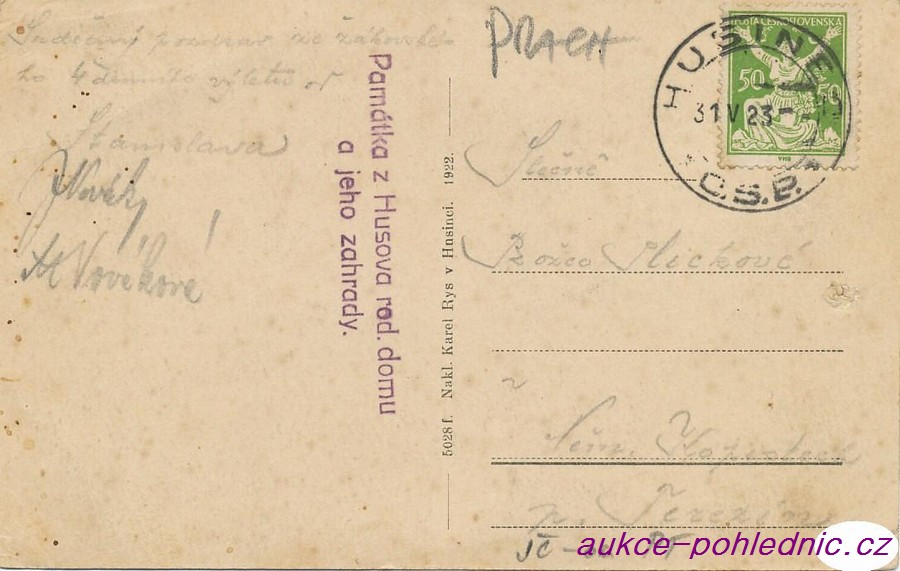 Srdečný pozdrav ze žákovské-
ho 4denního výletu od
Stanislava
JNováky
Nováková
Památka z Husova rod. domu
a jeho zahrady.
5028 f. Nakl. Karel Rys v Husinci. 1922.
PRACH
POŠTA ČESKOSLOVENSKA
50
HUSINE
31 V 23
Č.S.P.
Slečně
Boženo Plickové
Něm. Kopistech
p. Terezín
aukce-pohlednic.cz